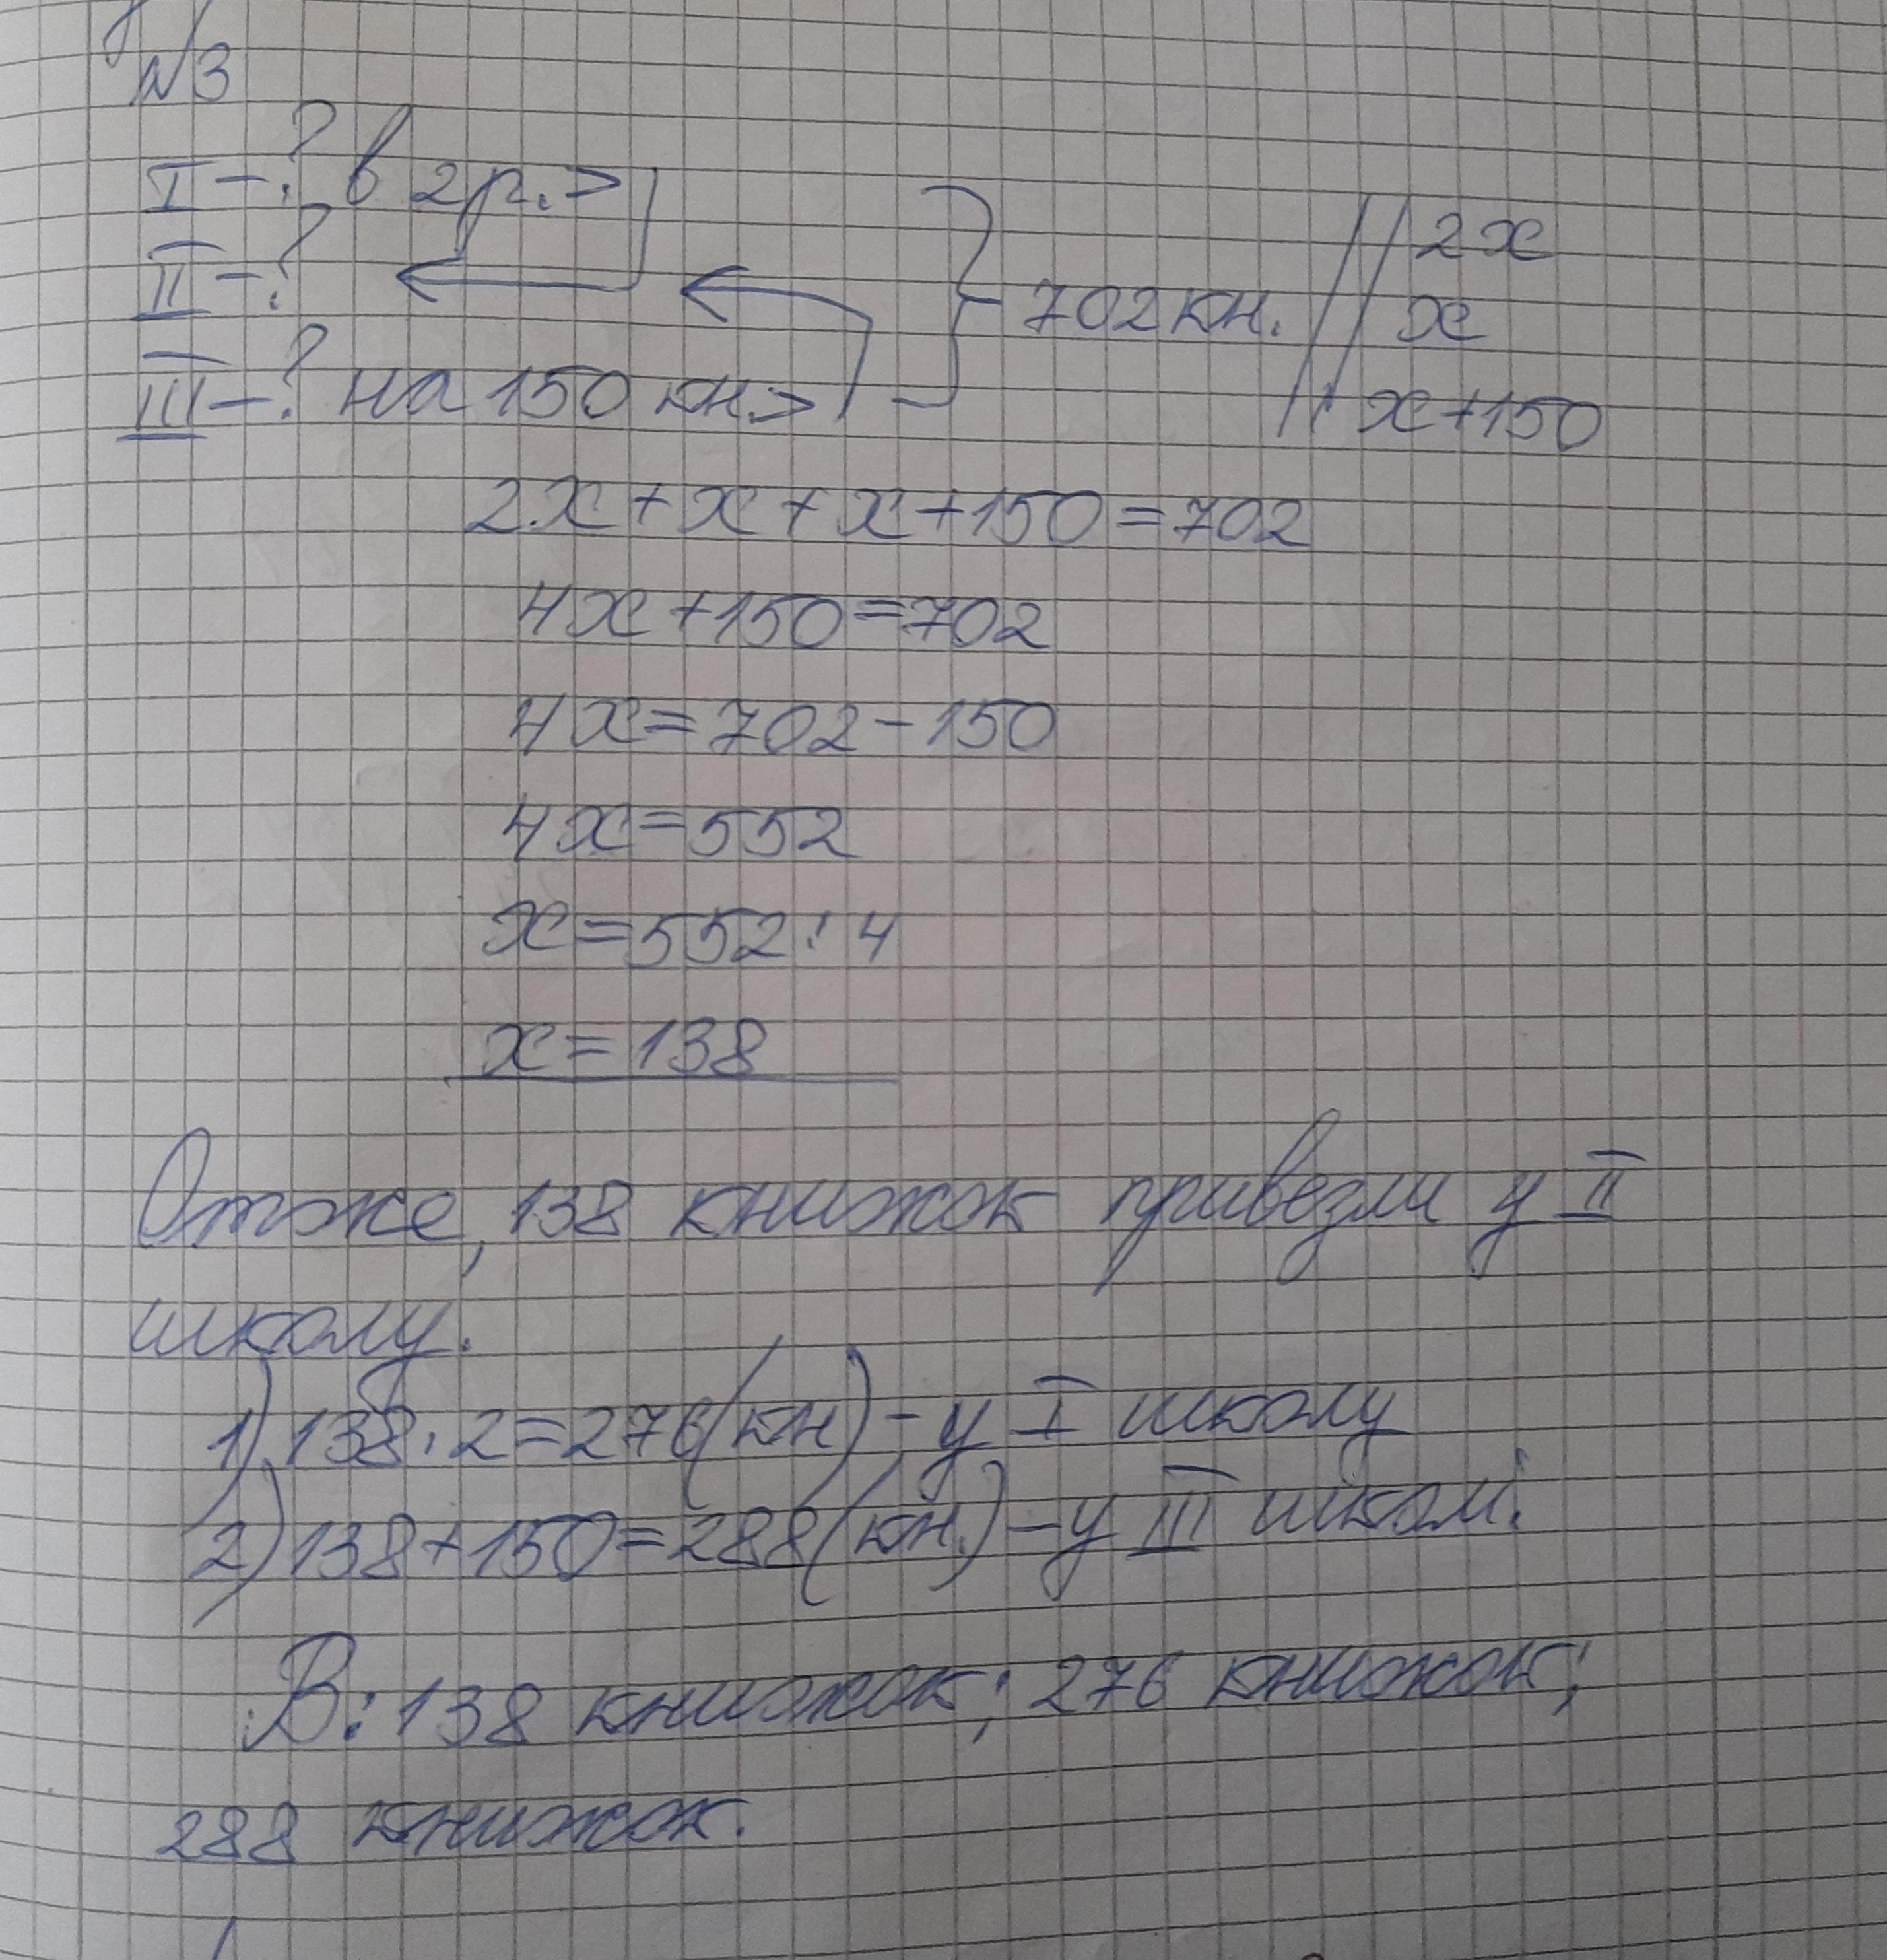 №3
I - ? в 2 р. >
II - ?
III - ? на 150 кн. >
702 кн.
2x
x
x+150
2x+x+x+150=702
4x+150=702
4x=702-150
4x=552
x=552:4
x=138
Отже, 138 книжок привезли у II
школу.
1) 138·2=276(кн) - у I школу
2) 138+150=288(кн.) - у III школі.
В: 138 книжок; 276 книжок;
288 книжок.